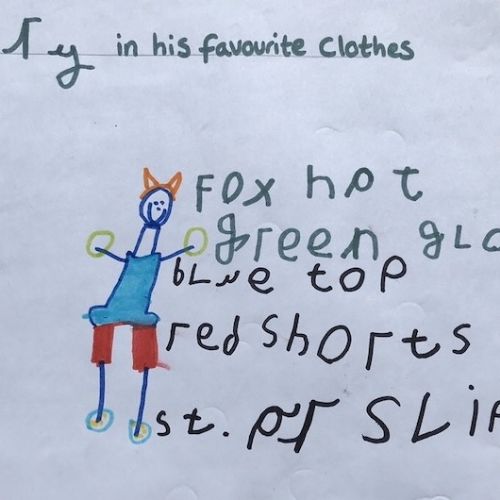 Ty in his favourite clothes
Fox hat
green gLo
bLue top
red shorts
st.